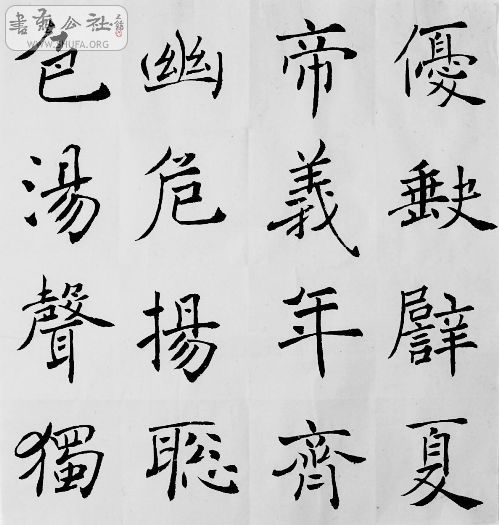 書法公社
WWW.SHUFA.ORG
優譬夏
帝義年齊
幽危揚聡
色湯聲獨